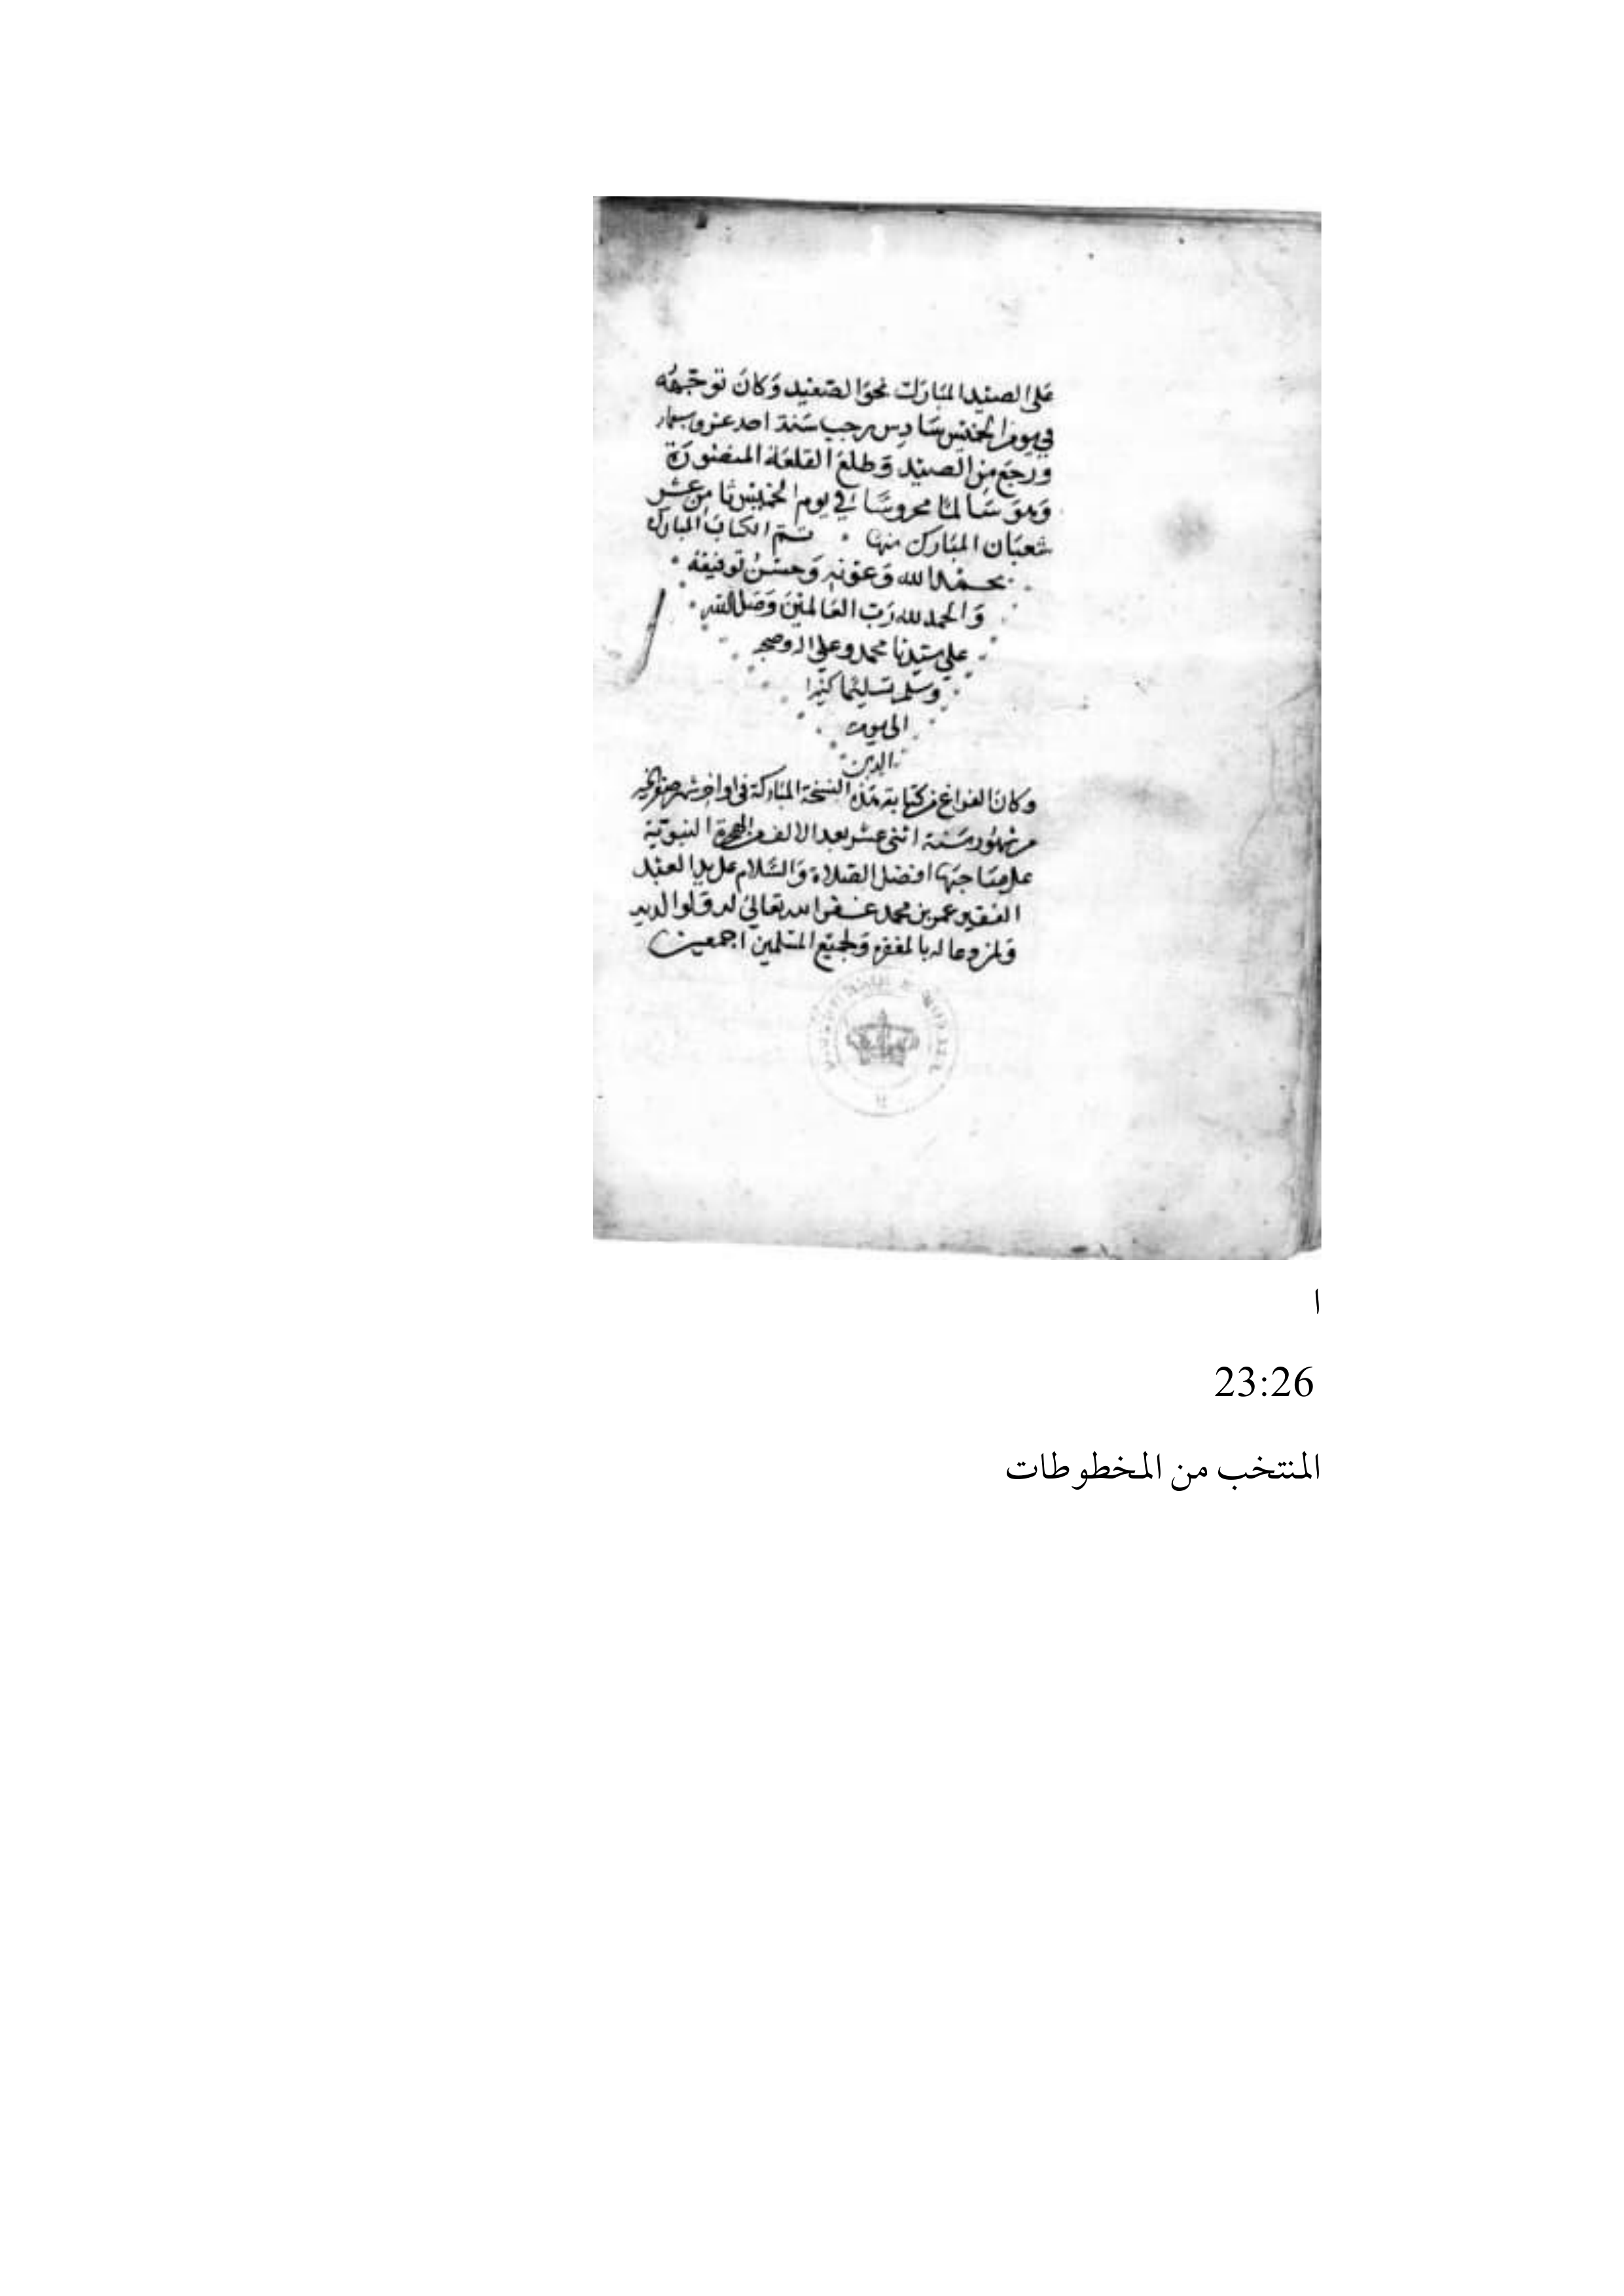 على الصيد المبارك نحو الصعيد وكان توجهه
في يوم الخميس سادس رجب سنة احد عشر وسبعماية
ورجع من الصيد وطلع القلعة المنصورة
وهو سالما محروسا في يوم الخميس ثامن عشر
شعبان المبارك منها تم الكتاب المبارك
بحمد الله وعونه وحسن توفيقه
والحمد لله رب العالمين وصلى الله
على سيدنا محمد وعلى اله وصحبه
وسلم تسليما كثيرا
الى يوم
الدين
وكان الفراغ من كتابة هذه النسخة المباركة في اواخر شهر صفر الخير
من شهور سنة اثنى عشر بعد الالف من الهجرة النبوية
على صاحبها افضل الصلاة والسلام على يد العبد
الفقير عمر بن محمد غفر الله تعالى له ولوالديه
ولمن دعا له بالمغفرة ولجميع المسلمين اجمعين
ا
23:26
المنتخب من المخطوطات